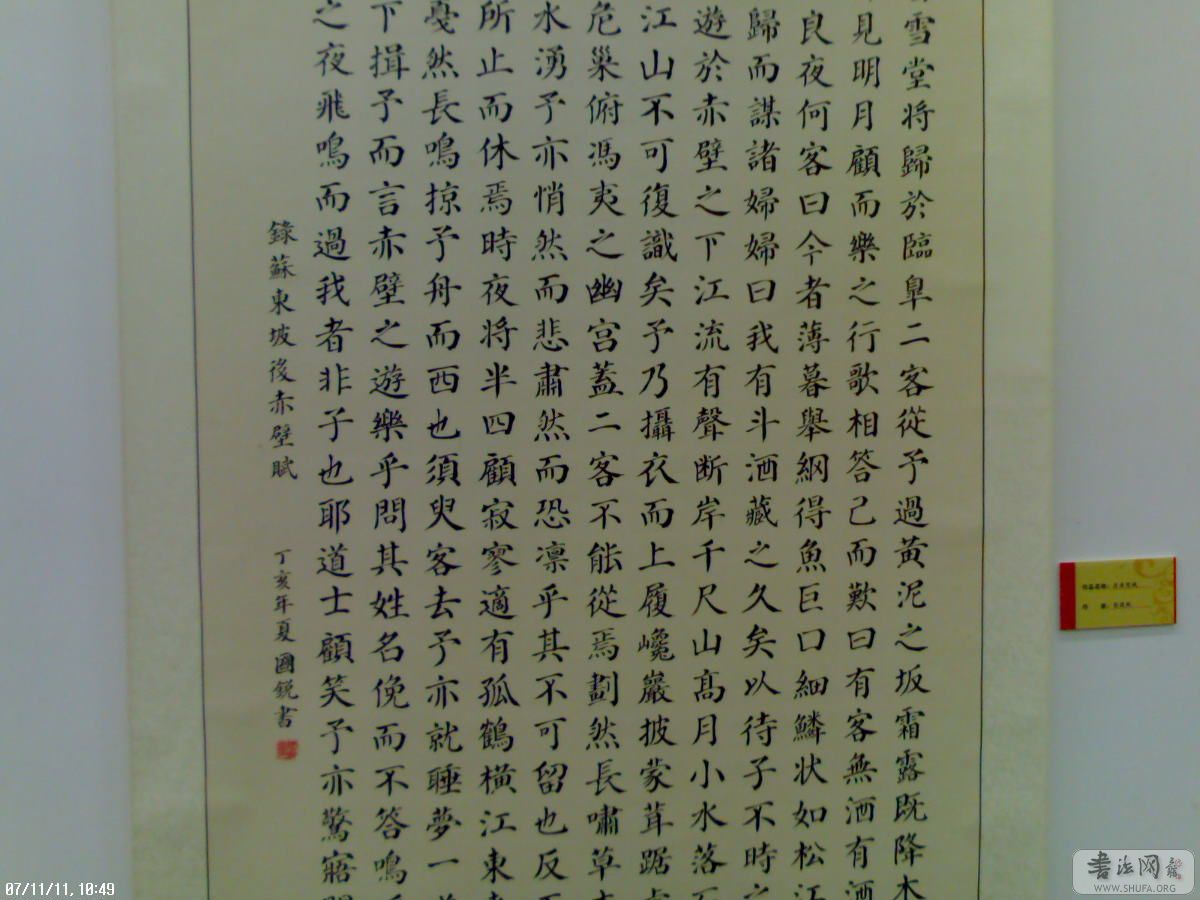 雪堂将歸於臨皐二客從予過黄泥之坂霜露既降木
見明月顧而樂之行歌相答已而歎曰有客無酒有酒
良夜何客曰今者薄暮舉網得魚巨口細鱗状如松江
歸而謀諸婦婦曰我有斗酒藏之久矣以待子不時之
遊於赤壁之下江流有聲断岸千尺山髙月小水落石
江山不可復識矣予乃攝衣而上履巉巖披蒙茸踞
危巢俯馮夷之幽宫蓋二客不能從焉劃然長嘯草
水湧予亦悄然而悲肅然而恐凛乎其不可留也反
所止而休焉時夜将半四顧寂寥適有孤鶴橫江東
戛然長鳴掠予舟而西也須臾客去予亦就睡夢一
下揖予而言赤壁之遊樂乎問其姓名俛而不答鳴
之夜飛鳴而過我者非子也耶道士顧笑予亦驚寤
錄蘇東坡後赤壁賦
丁亥年夏國鋭書
07/11/11, 10:49
书法网
WWW.SHUFA.ORG